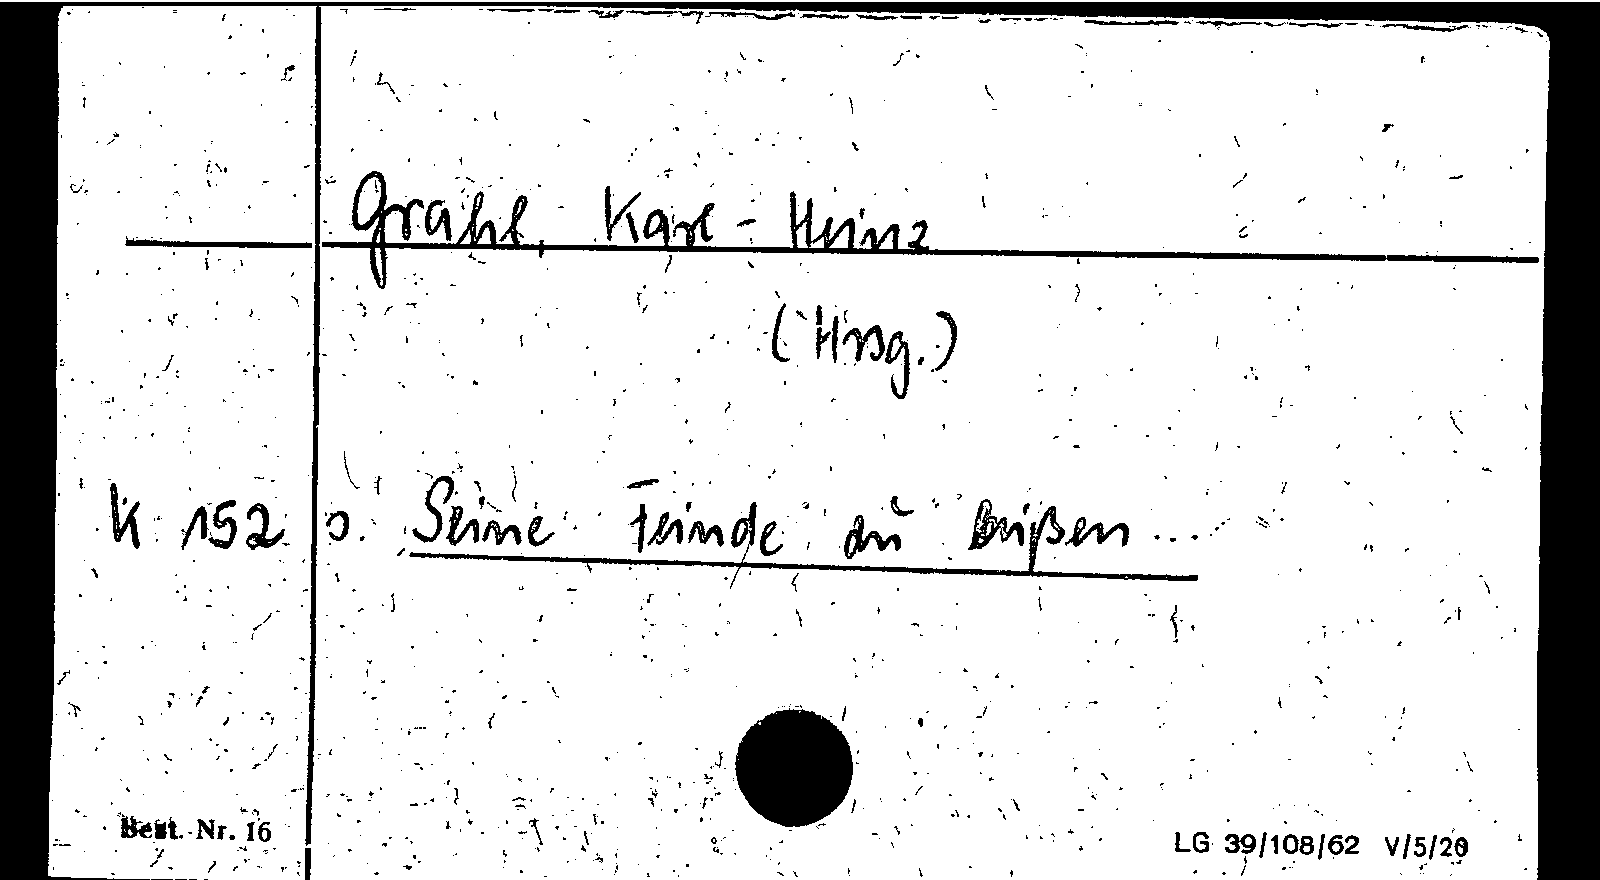 Grahl, Karl-Heinz
(Hrsg.)
K 152 s. Seine Feinde zu beißen...
Best. Nr. 16
LG 39/108/62 V/5/20